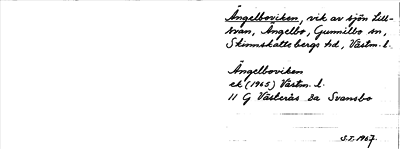 Ängelboviken, vik av sjön Lill-
svan, Ängelbo, Gunnilbo sn,
Skinnskattebergs hd, Västm. l.
Ängelboviken
ek (1965) Västm. l.
11 G Västerås 3a Svansbo
S.I. 1967.